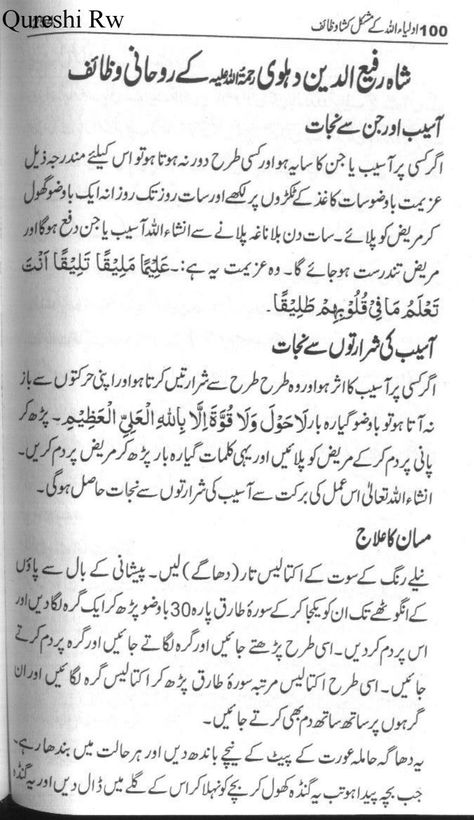 Qureshi Rw
100 اولیاء اللہ کے مشکل کشا وظائف
شاہ رفیع الدین دہلوی رحمۃ اللہ علیہ کے روحانی وظائف
آسیب اور جن سے نجات
اگر کسی پر آسیب یا جن کا سایہ ہو اور کسی طرح دور نہ ہوتا ہو تو اس کیلئے مندرجہ ذیل
عزیمت باوضو سات کاغذ کے ٹکڑوں پر لکھے اور سات روز تک روزانہ ایک باوضو گھول
کر مریض کو پلائے۔ سات دن بلا ناغہ پلانے سے انشاء اللہ آسیب یا جن دفع ہوگا اور
مریض تندرست ہو جائے گا۔ وہ عزیمت یہ ہے:۔ عَلِيْمًا مَلِيْقًا تَلِيْقًا اَنْتَ
تَعْلَمُ مَا فِيْ قُلُوْبِهِمْ طَلِيْقًا۔
آسیب کی شرارتوں سے نجات
اگر کسی پر آسیب کا اثر ہو اور وہ طرح طرح سے شرارتیں کرتا ہو اور اپنی حرکتوں سے باز
نہ آتا ہو تو باوضو گیارہ بار لَا حَوْلَ وَلَا قُوَّةَ اِلَّا بِاللهِ الْعَلِيِّ الْعَظِيْمِ۔ پڑھ کر
پانی پر دم کر کے مریض کو پلائیں اور یہی کلمات گیارہ بار پڑھ کر مریض پر دم کریں۔
انشاء اللہ تعالیٰ اس عمل کی برکت سے آسیب کی شرارتوں سے نجات حاصل ہوگی۔
مسان کا علاج
نیلے رنگ کے سوت کے اکتالیس تار (دھاگے) لیں۔ پیشانی کے بال سے پاؤں
کے انگوٹھے تک ان کو یکجا کر کے سورۂ طارق پارہ 30 باوضو پڑھ کر ایک گرہ لگا دیں اور
اس پر دم کر دیں۔ اسی طرح پڑھتے جائیں اور گرہ لگاتے جائیں اور گرہ پر دم کرتے
جائیں۔ اسی طرح اکتالیس مرتبہ سورۂ طارق پڑھ کر اکتالیس گرہ لگائیں اور ان
گرہوں پر ساتھ ساتھ دم بھی کرتے جائیں۔
یہ دھاگہ حاملہ عورت کے پیٹ کے نیچے باندھ دیں اور ہر حالت میں بندھا رہے۔
جب بچہ پیدا ہو تب یہ گنڈہ کھول کر بچے کو نہلا کر اس کے گلے میں ڈال دیں اور یہ گنڈہ